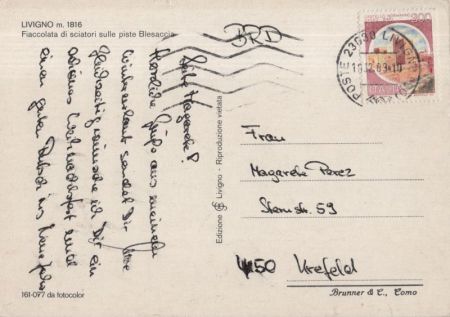 LIVIGNO m. 1816
Fiaccolata di sciatori sulle piste Blesaccia
BRD
POSTE 23030 LIVIGNO
ITALIA
Liebe Magarete!
Herzliche Grüße aus meinem
Winterurlaub sendet Dir
Gleichzeitig wünsche ich Dir ein
schönes Weihnachtsfest und
einen guten Rutsch ins Neue Jahr
161-077 da fotocolor
Edizione Livigno - Riproduzione vietata
Frau
Magarete Perez
Sternstr. 59
Krefeld
Brunner & C., Como